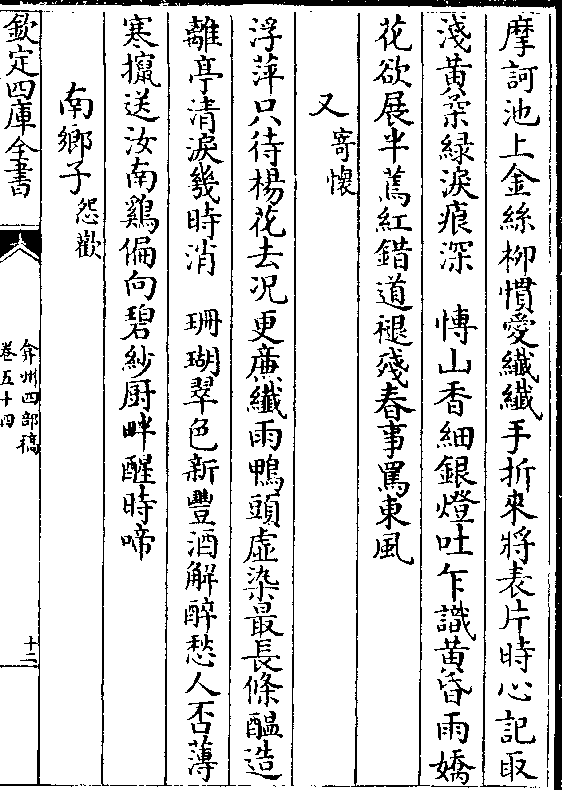 摩訶池上金絲柳慣愛纖纖手折來將表片時心記取
淺黄柔綠淚痕深　愽山香細銀燈吐乍識黄昏雨嬌
花欲展半蔫紅錯道褪殘春事罵東風
又寄懷
浮萍只待楊花去况更廉纖雨鴨頭虚染最長條醖造
離亭清淚幾時消　珊瑚翠色新豐酒解醉愁人否薄
寒攛送汝南鷄偏向碧紗厨畔醒時啼
南鄉子怨歡
欽定四庫全書
弇州四部稿
卷五十四
十二